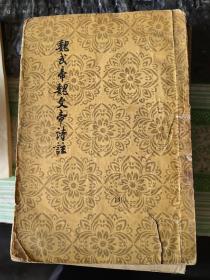 魏武帝魏文帝诗註